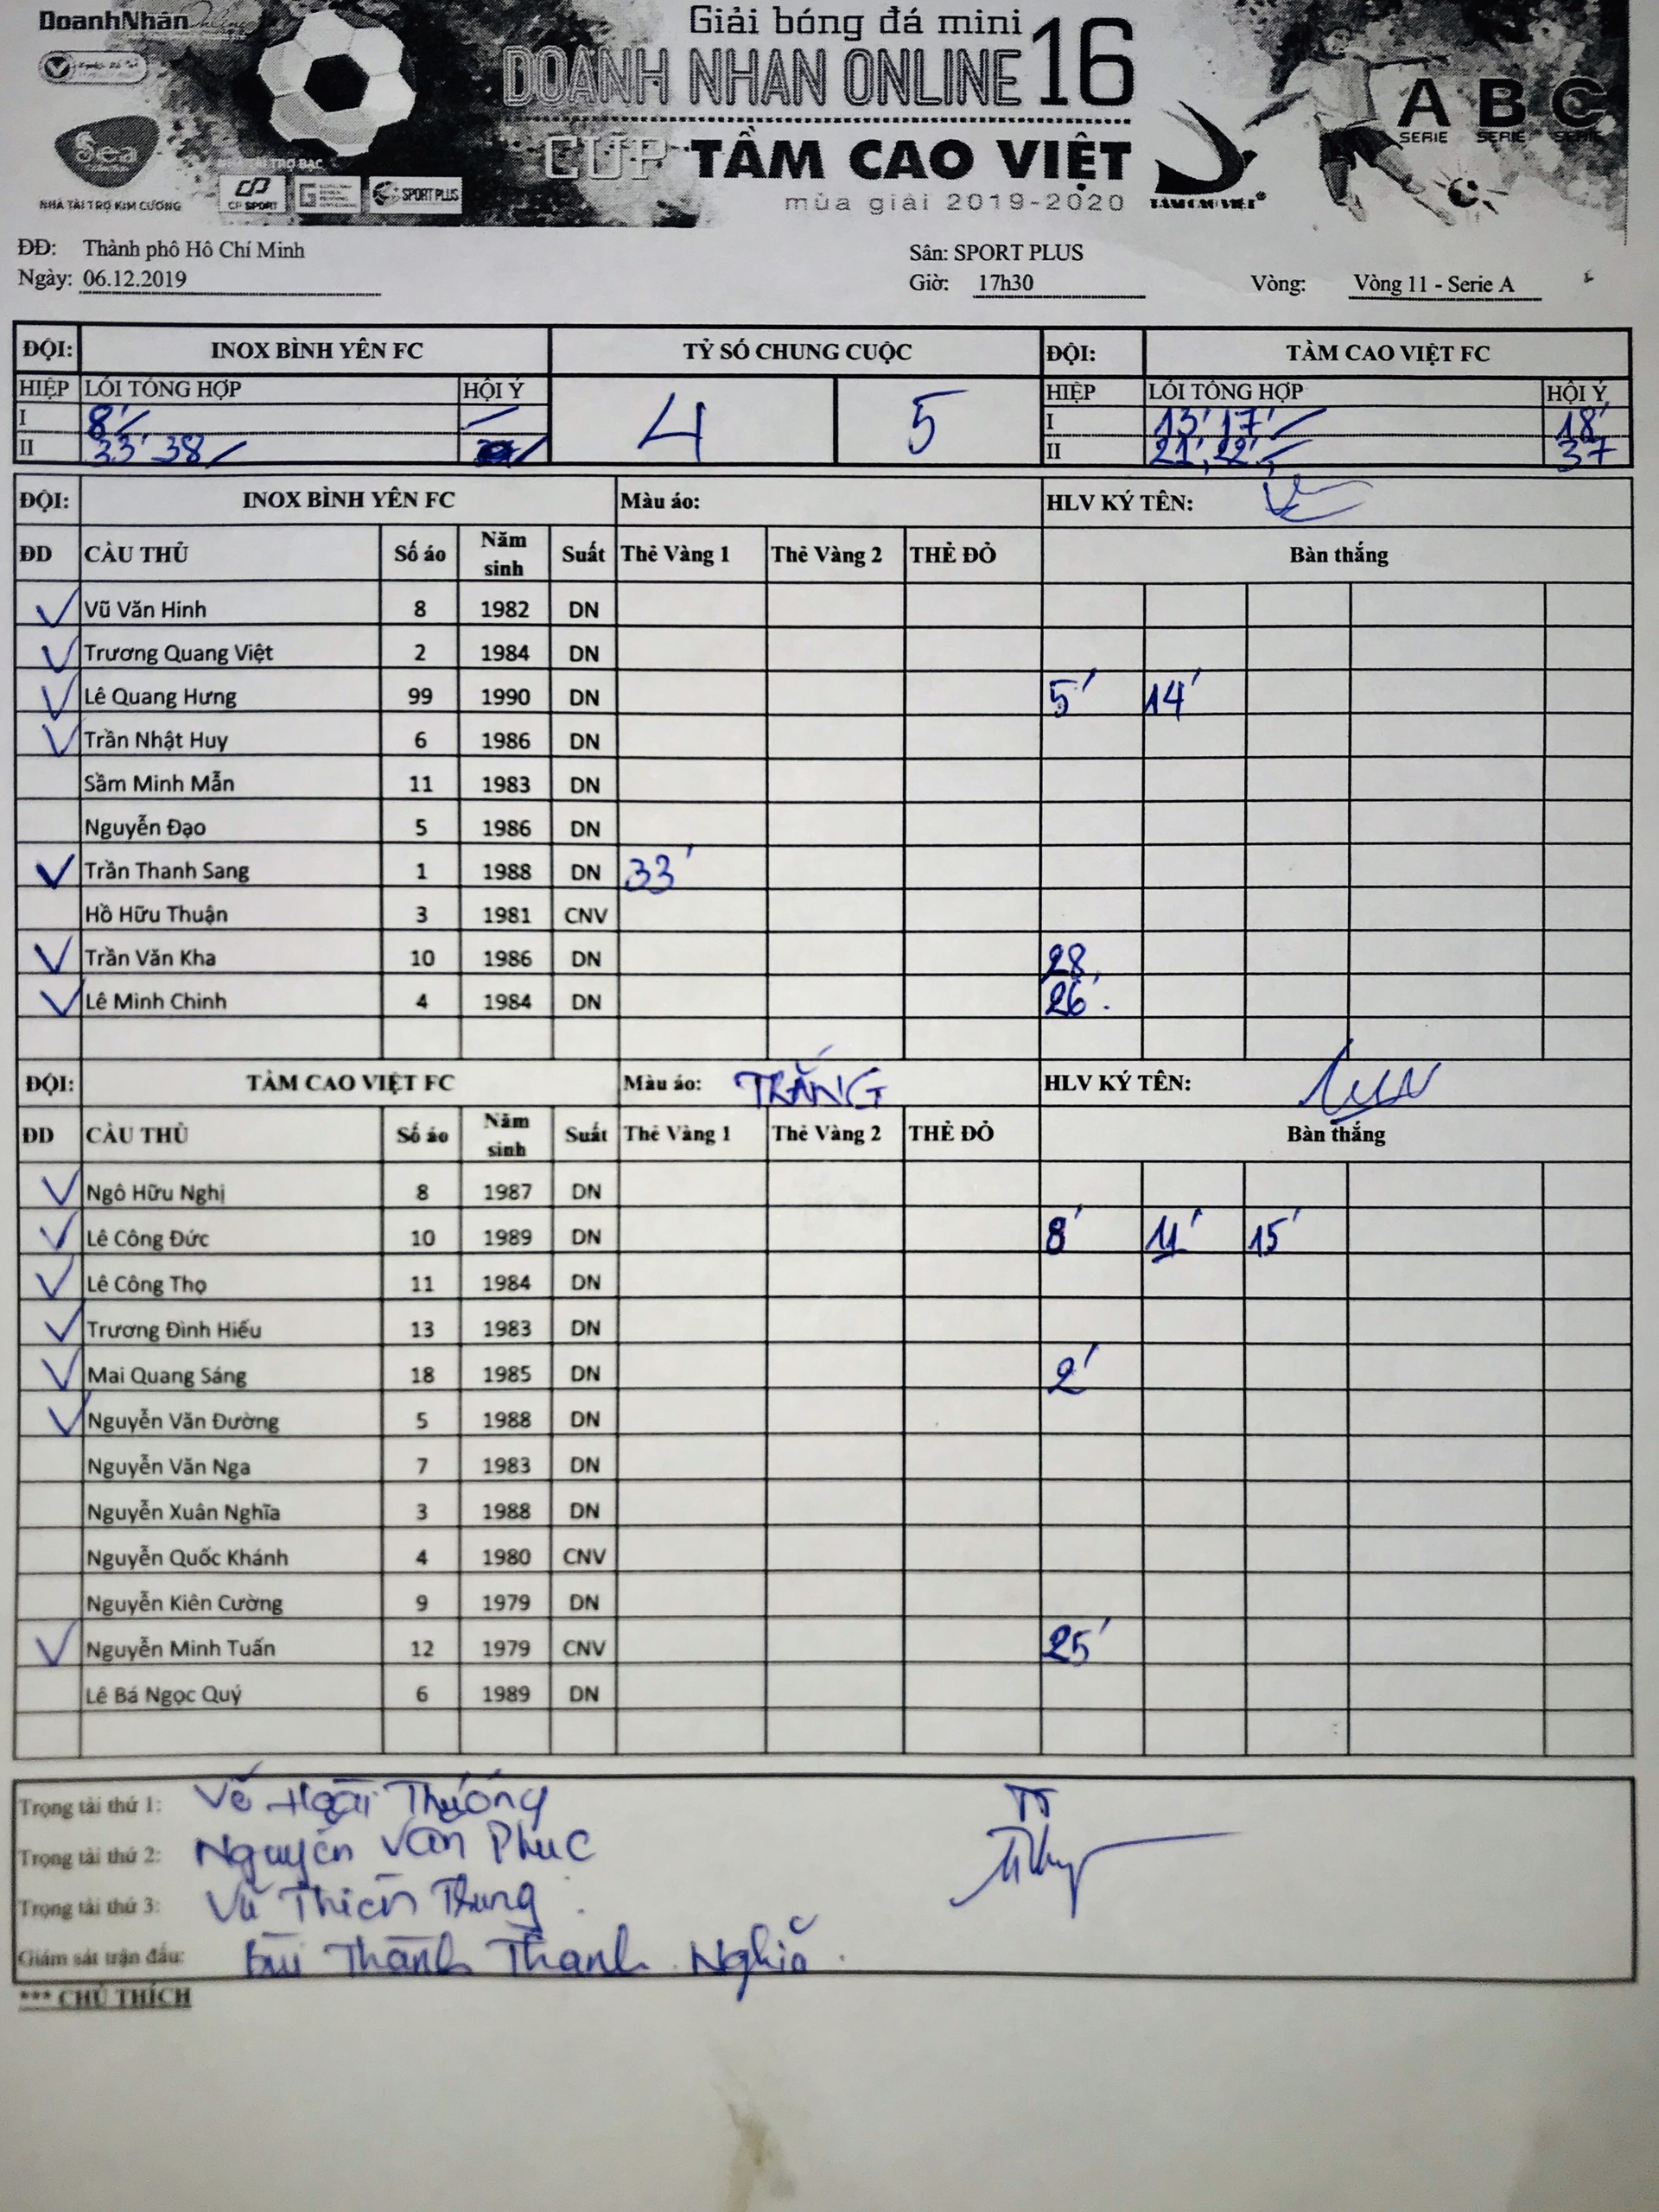 DoanhNhân Online
Giải bóng đá mini
DOANH NHAN ONLINE 16
CUP TẦM CAO VIỆT
mùa giải 2019-2020
TẦM CAO VIỆT®
A B C
SERIE SERIE SERIE
Sea
NHÀ TÀI TRỢ KIM CƯƠNG
NHÀ TÀI TRỢ BẠC
CP SPORT
SPORT PLUS
ĐĐ: Thành phô Hô Chí Minh Sân: SPORT PLUS
Ngày: 06.12.2019 Giờ: 17h30 Vòng: Vòng 11 - Serie A
ĐỘI: INOX BÌNH YÊN FC TỶ SỐ CHUNG CUỘC ĐỘI: TẦM CAO VIỆT FC
HIỆP LỖI TỔNG HỢP HỘI Ý 4 5 HIỆP LỖI TỔNG HỢP HỘI Ý
I 8' I 13' 17' 18'
II 33' 38 II 21', 22' 37
ĐỘI: INOX BÌNH YÊN FC Màu áo: HLV KÝ TÊN:
ĐD CẦU THỦ Số áo Năm sinh Suất Thẻ Vàng 1 Thẻ Vàng 2 THẺ ĐỎ Bàn thắng
Vũ Văn Hinh 8 1982 DN
Trương Quang Việt 2 1984 DN
Lê Quang Hưng 99 1990 DN 5' 14'
Trần Nhật Huy 6 1986 DN
Sầm Minh Mẫn 11 1983 DN
Nguyễn Đạo 5 1986 DN
Trần Thanh Sang 1 1988 DN 33'
Hồ Hữu Thuận 3 1981 CNV
Trần Văn Kha 10 1986 DN 28
Lê Minh Chinh 4 1984 DN 26'
ĐỘI: TẦM CAO VIỆT FC Màu áo: TRẮNG HLV KÝ TÊN:
ĐD CẦU THỦ Số áo Năm sinh Suất Thẻ Vàng 1 Thẻ Vàng 2 THẺ ĐỎ Bàn thắng
Ngô Hữu Nghị 8 1987 DN
Lê Công Đức 10 1989 DN 8' 11' 15'
Lê Công Thọ 11 1984 DN
Trương Đình Hiếu 13 1983 DN
Mai Quang Sáng 18 1985 DN 2'
Nguyễn Văn Đường 5 1988 DN
Nguyễn Văn Nga 7 1983 DN
Nguyễn Xuân Nghĩa 3 1988 DN
Nguyễn Quốc Khánh 4 1980 CNV
Nguyễn Kiên Cường 9 1979 DN
Nguyễn Minh Tuấn 12 1979 CNV 25'
Lê Bá Ngọc Quý 6 1989 DN
Trọng tài thứ 1: Võ Hoài Thương
Trọng tài thứ 2: Nguyễn Văn Phúc
Trọng tài thứ 3: Vũ Thiên Trung
Giám sát trận đấu: Bùi Thành Thanh Nghĩa
*** CHÚ THÍCH